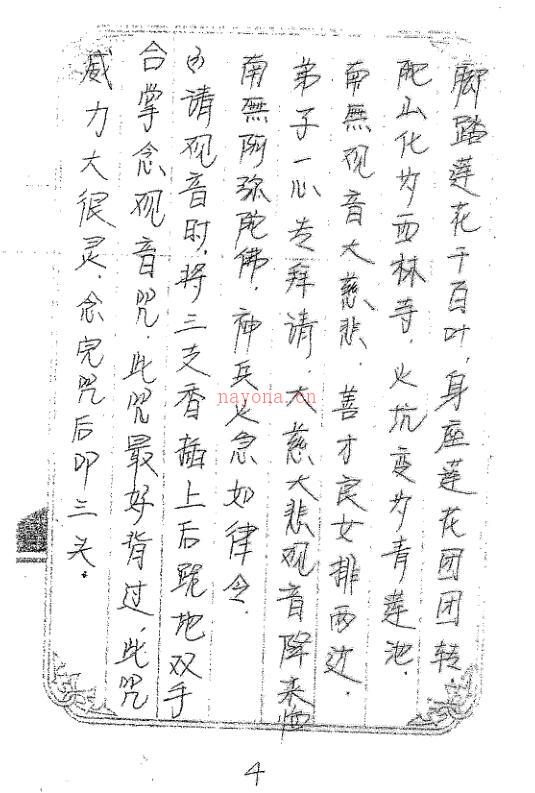 脚踏莲花千百叶，身座莲花团团转．
爬山化为西林寺，火坑变为青莲池．
南無观音大慈悲．善才良女排两边．
弟子一心专拜请．大慈大悲观音降来临
南無阿弥陀佛．神兵火急如律令．
请观音时，将三支香插上后跪地双手
合掌念观音咒．此咒最好背过，此咒
威力大很灵．念完咒后叩三头．
nayona.cn
4